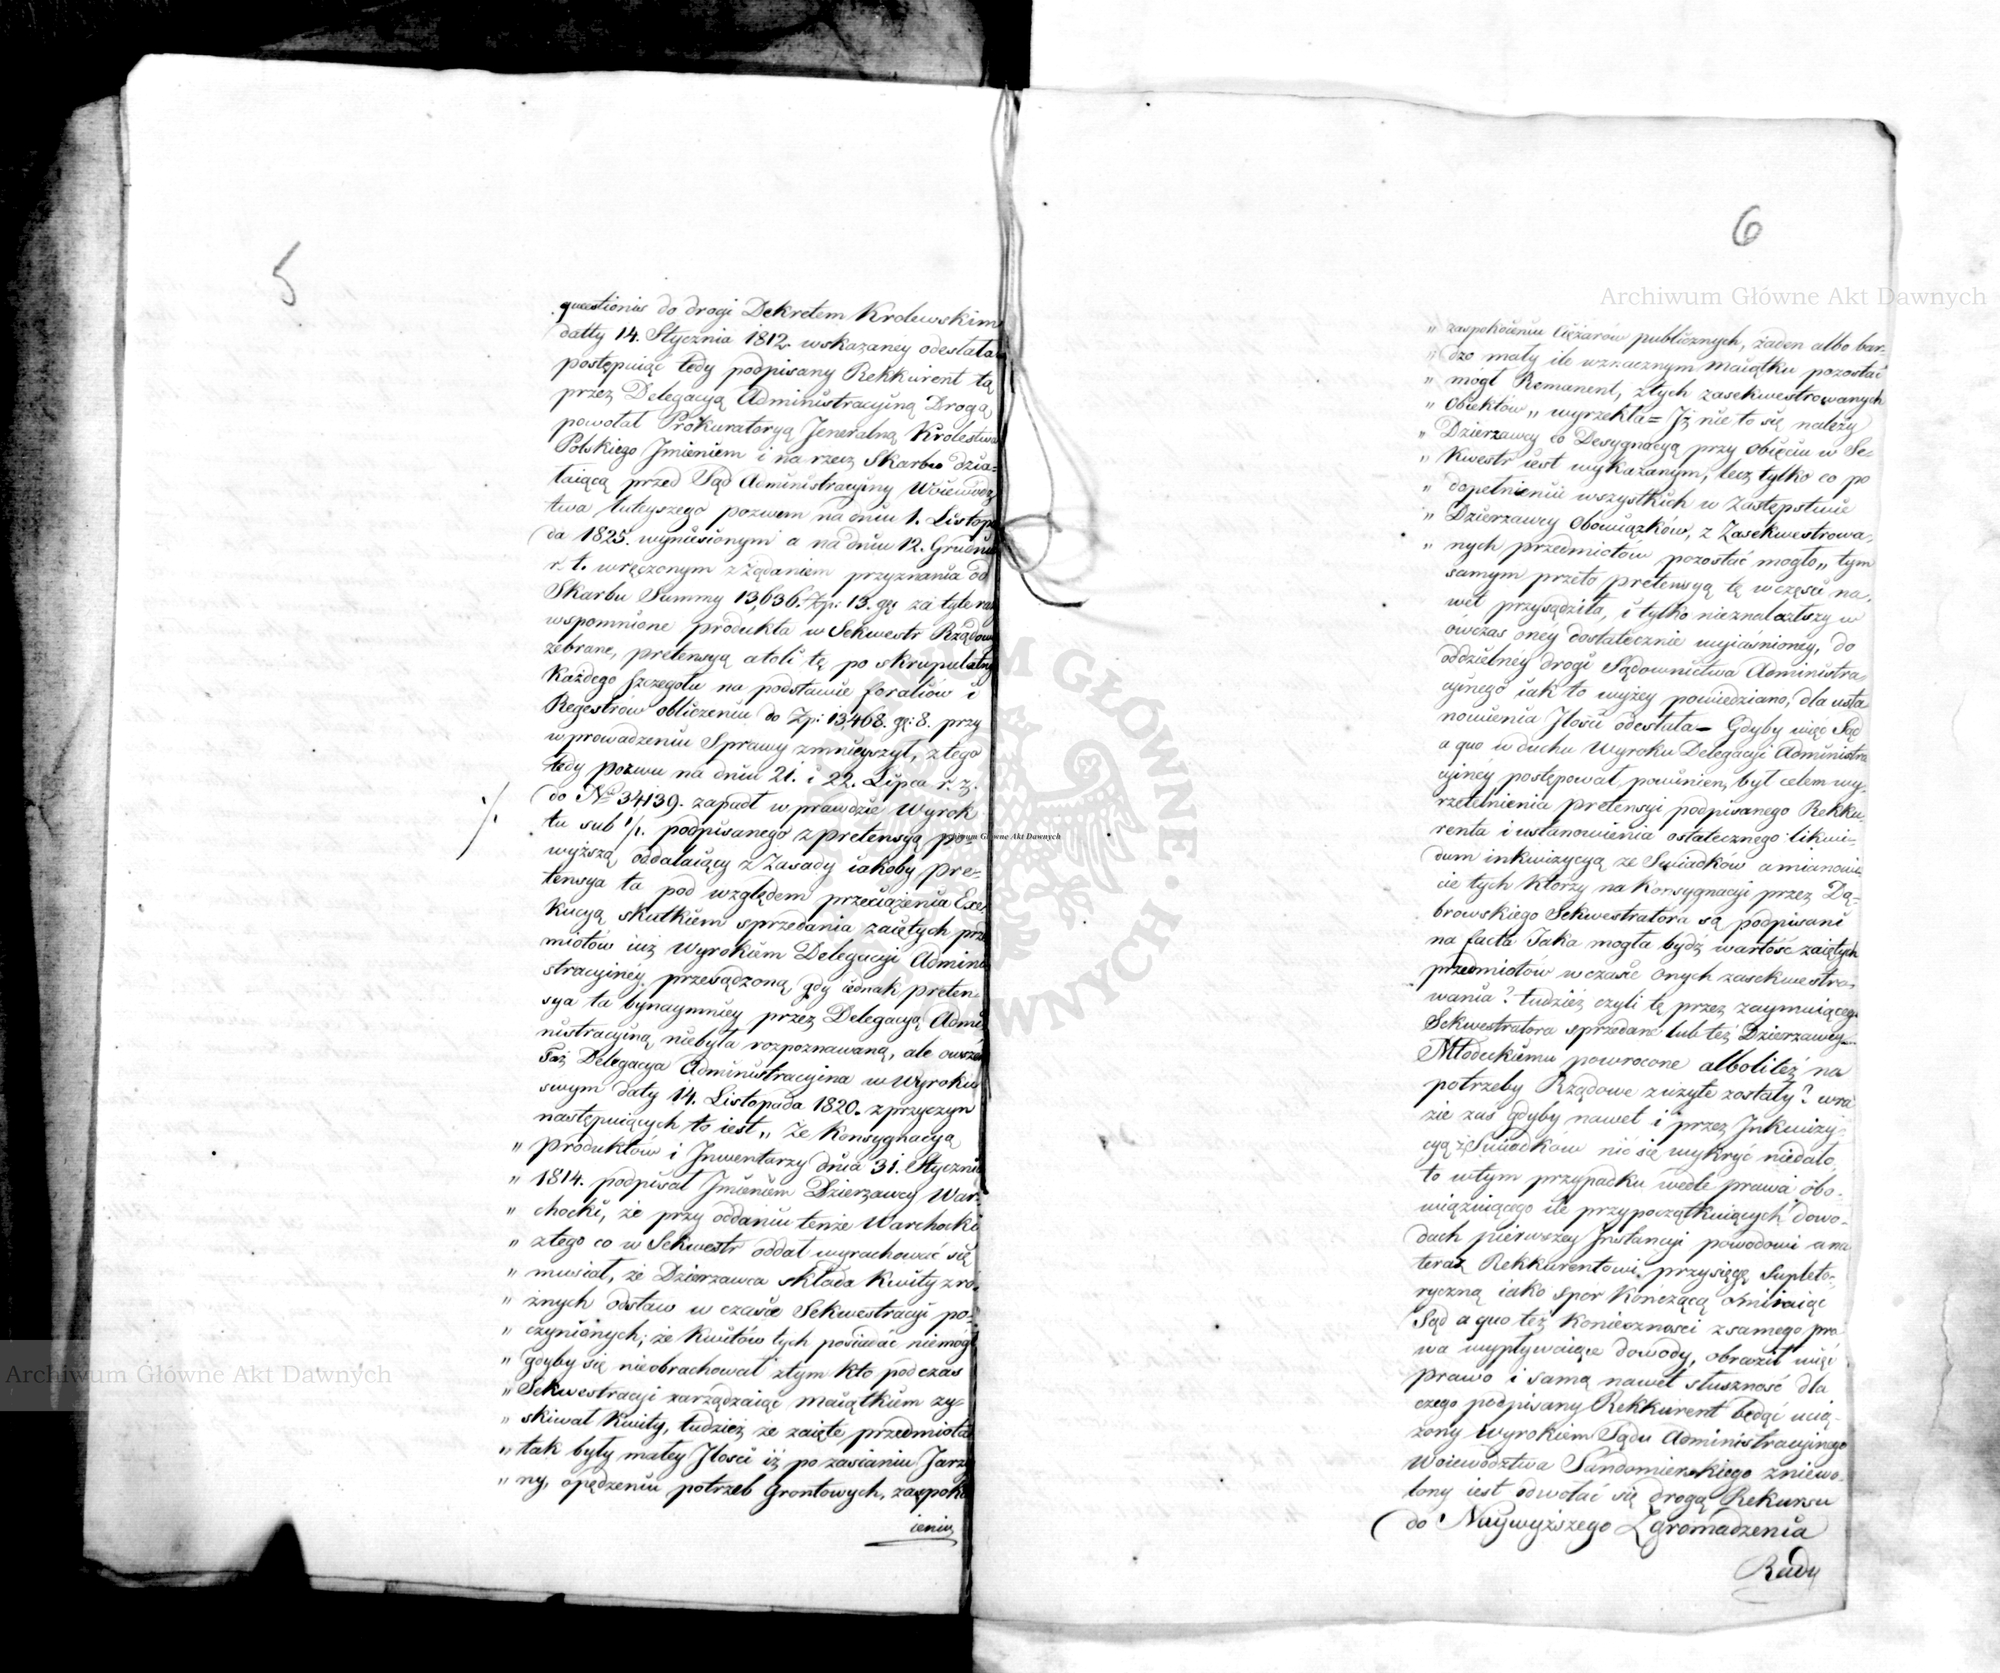 5
quæstionis do drogi Dekretem Krolewskim
datty 14. Stycznia 1812 wskazaney odesłała
postępuiąc tedy podpisany Rekkurent tą
przez Delegacyą Administracyiną Drogą,
powołał Prokuratoryą Jeneralną Krolestwa
Polskiego Jmieniem i na rzecz Skarbu dzia=
łaiącą przed Sąd Administracyiny Woiewodz
twa tuteyszego pozwem na dniu 1. Listopa
da 1825. wyniesionym a na dniu 12. Grudnia
r. t. wręczonym z żądaniem przyznania od
Skarbu Summy 13,636. Zp: 13. gr za tyle raz
wspomnione produkta w Sekwestr Rządow
zebrane, pretensyą atoli tę po skrupulatny
Każdego szczegołu na podstawie foraliów i
Regestrów obliczeniu do Zp: 13468. gr: 8. przy
wprowadzeniu Sprawy zmnieyszył, z tego
tedy pozwu na dniu 21. i 22. Lipca r. z.
do No 34139. zapadł w prawdzie Wyrok
tu sub ./. podpisanego z pretensyą po=
wyższą oddalaiący z Zasady iakoby pre=
tensya ta pod względem przeciążenia Exe
kucyą skutkiem sprzedania zaiętych prze
miotów iuż Wyrokiem Delegacyi Admini
stracyiney przesądzoną, gdy iednak preten=
sya ta bynaymniey przez Delegacyą Admi
nistracyiną niebyła rozpoznawaną, ale owszem
Taż Delegacya Administracyina w Wyroku
swym daty 14. Listopada 1820. z przyczyn
następuiących to iest „ Ze Konsygnacyą
„ produktów i Jnwentarzy dnia 31. Stycznia
„ 1814. podpisał Jmieniem Dzierzawcy War
„ chocki, że przy oddaniu tenże Warchocki
„ z tego co w Sekwestr oddał wyrachować się
„ musiał, że Dzierzawca składa Kwity z ró=
„ żnych odstaw w czasie Sekwestracyi po=
„ czynionych; że Kwitów tych posiadać niemógł
„ gdyby się nieobrachował z tym kto podczas
„ Sekwestracyi zarządzaiąc maiątkiem zy=
„ skiwał Kwity, tudzież że zaięte przedmiota
„ tak były małey Jlosci iż po zasianiu Jarzy
„ ny, opędzeniu potrzeb Grontowych, zaspoko
ieniu
6
„ zaspokoieniu Ciężarów publicznych, żaden albo bar=
„ dzo mały ile w znacznym maiątku pozostać
„ mógł Remanent, z tych zasekwestrowanych
„ Obiektów „ wyrzekła = Jż nie to się należy
„ Dzierzawcy co Desygnacyą przy obięciu w Se=
„ kwestr iest wykazanym, lecz tylko co po
„ dopełnieniu wszystkich w Zastępstwie
„ Dzierzawcy Obowiązków, z Zasekwestrowa=
„ nych przedmiotów pozostać mogło „ tym
samym przeto pretensyą tę w części na=
wet przysądziła, i tylko nieznalazłszy w
ówczas oney dostatecznie wyiaśnioney, do
oddzielney drogi Sądownictwa Administra=
cyinego iak to wyżey powiedziano, dla usta
nowienia Jlości odesłała = Gdyby więc Sąd
a quo w duchu Wyroku Delegacyi Administra
cyiney postępował, powinien był celem wy=
rzetelnienia pretensyi podpisanego Rekku=
renta i ustanowienia ostatecznego likwi=
dum inkwizycyą ze Swiadków a mianowi
cie tych Ktorzy na Konsygnacyi przez Dą=
browskiego Sekwestratora są podpisani
na facta Jaka mogła bydź wartość zaiętych
przedmiotów w czasie onych zasekwestro=
wania? tudzież czyli tę przez zaymuiącego
Sekwestratora sprzedane lub też Dzierzawcy
Młodeckiemu powrocone alboliteż na
potrzeby Rządowe zużyte zostały? w ra
zie zaś gdyby nawet i przez Jnkwizy=
cyą z Swiadków nic się wykryć niedało,
to w tym przypadku wedle prawa obo=
wiązuiącego ile przy początkuiących dowo=
dach pierwszey Jnstancyi powodowi a na
teraz Rekkurentowi przysięgę Supleto=
ryczną iako spor Kończącą Ominaiąc
Sąd a quo też Konieczności z samego pra
wa wypływaiące dowody, obraził więc
prawo i samą nawet słuszność dla
czego podpisany Rekkurent będąc ucią=
żony Wyrokiem Sądu Administracyinego
Woiewództwa Sandomierskiego zniewo=
lony iest odwołać się drogą Rekursu
do Naywyższego Zgromadzenia
Rady
Archiwum Główne Akt Dawnych
Archiwum Główne Akt Dawnych
Archiwum Główne Akt Dawnych